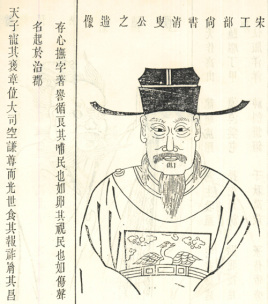 宋工部尚書清叟公之遺像
存心撫字著譽循良其哺民也如卵其視民也如傷聲
名起於治郡
天子寵其褒章位大司空謙尊而光世食其報祚胤其昌